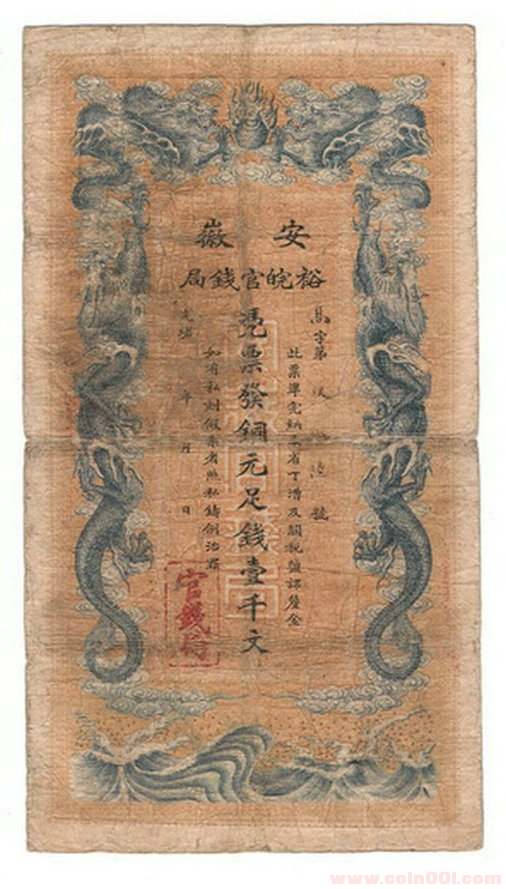 安徽
裕皖官錢局
爲字第 號
此票準完納本省丁漕及關稅鹽課釐金
憑票發銅元足錢壹千文
如有私刻假票者照私鑄例治罪
光緒 年 月 日
官錢
www.coin001.com